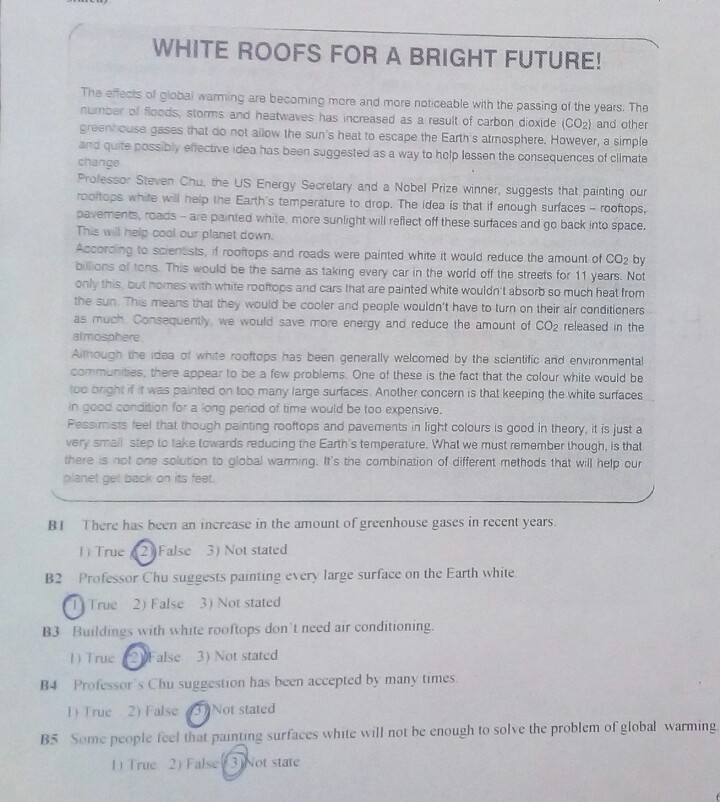 WHITE ROOFS FOR A BRIGHT FUTURE!
The effects of global warming are becoming more and more noticeable with the passing of the years. The
number of floods, storms and heatwaves has increased as a result of carbon dioxide (CO2) and other
greenhouse gases that do not allow the sun's heat to escape the Earth's atmosphere. However, a simple
and quite possibly effective idea has been suggested as a way to help lessen the consequences of climate
change.
Professor Steven Chu, the US Energy Secretary and a Nobel Prize winner, suggests that painting our
rooftops white will help the Earth's temperature to drop. The idea is that if enough surfaces – rooftops,
pavements, roads – are painted white, more sunlight will reflect off these surfaces and go back into space.
This will help cool our planet down.
According to scientists, if rooftops and roads were painted white it would reduce the amount of CO2 by
billions of tons. This would be the same as taking every car in the world off the streets for 11 years. Not
only this, but homes with white rooftops and cars that are painted white wouldn't absorb so much heat from
the sun. This means that they would be cooler and people wouldn't have to turn on their air conditioners
as much. Consequently, we would save more energy and reduce the amount of CO2 released in the
atmosphere.
Although the idea of white rooftops has been generally welcomed by the scientific and environmental
communities, there appear to be a few problems. One of these is the fact that the colour white would be
too bright if it was painted on too many large surfaces. Another concern is that keeping the white surfaces
in good condition for a long period of time would be too expensive.
Pessimists feel that though painting rooftops and pavements in light colours is good in theory, it is just a
very small step to take towards reducing the Earth's temperature. What we must remember though, is that
there is not one solution to global warming. It's the combination of different methods that will help our
planet get back on its feet.
B1 There has been an increase in the amount of greenhouse gases in recent years.
1) True 2) False 3) Not stated
B2 Professor Chu suggests painting every large surface on the Earth white.
1) True 2) False 3) Not stated
B3 Buildings with white rooftops don't need air conditioning.
1) True 2) False 3) Not stated
B4 Professor's Chu suggestion has been accepted by many times.
1) True 2) False 3) Not stated
B5 Some people feel that painting surfaces white will not be enough to solve the problem of global warming.
1) True 2) False 3) Not state